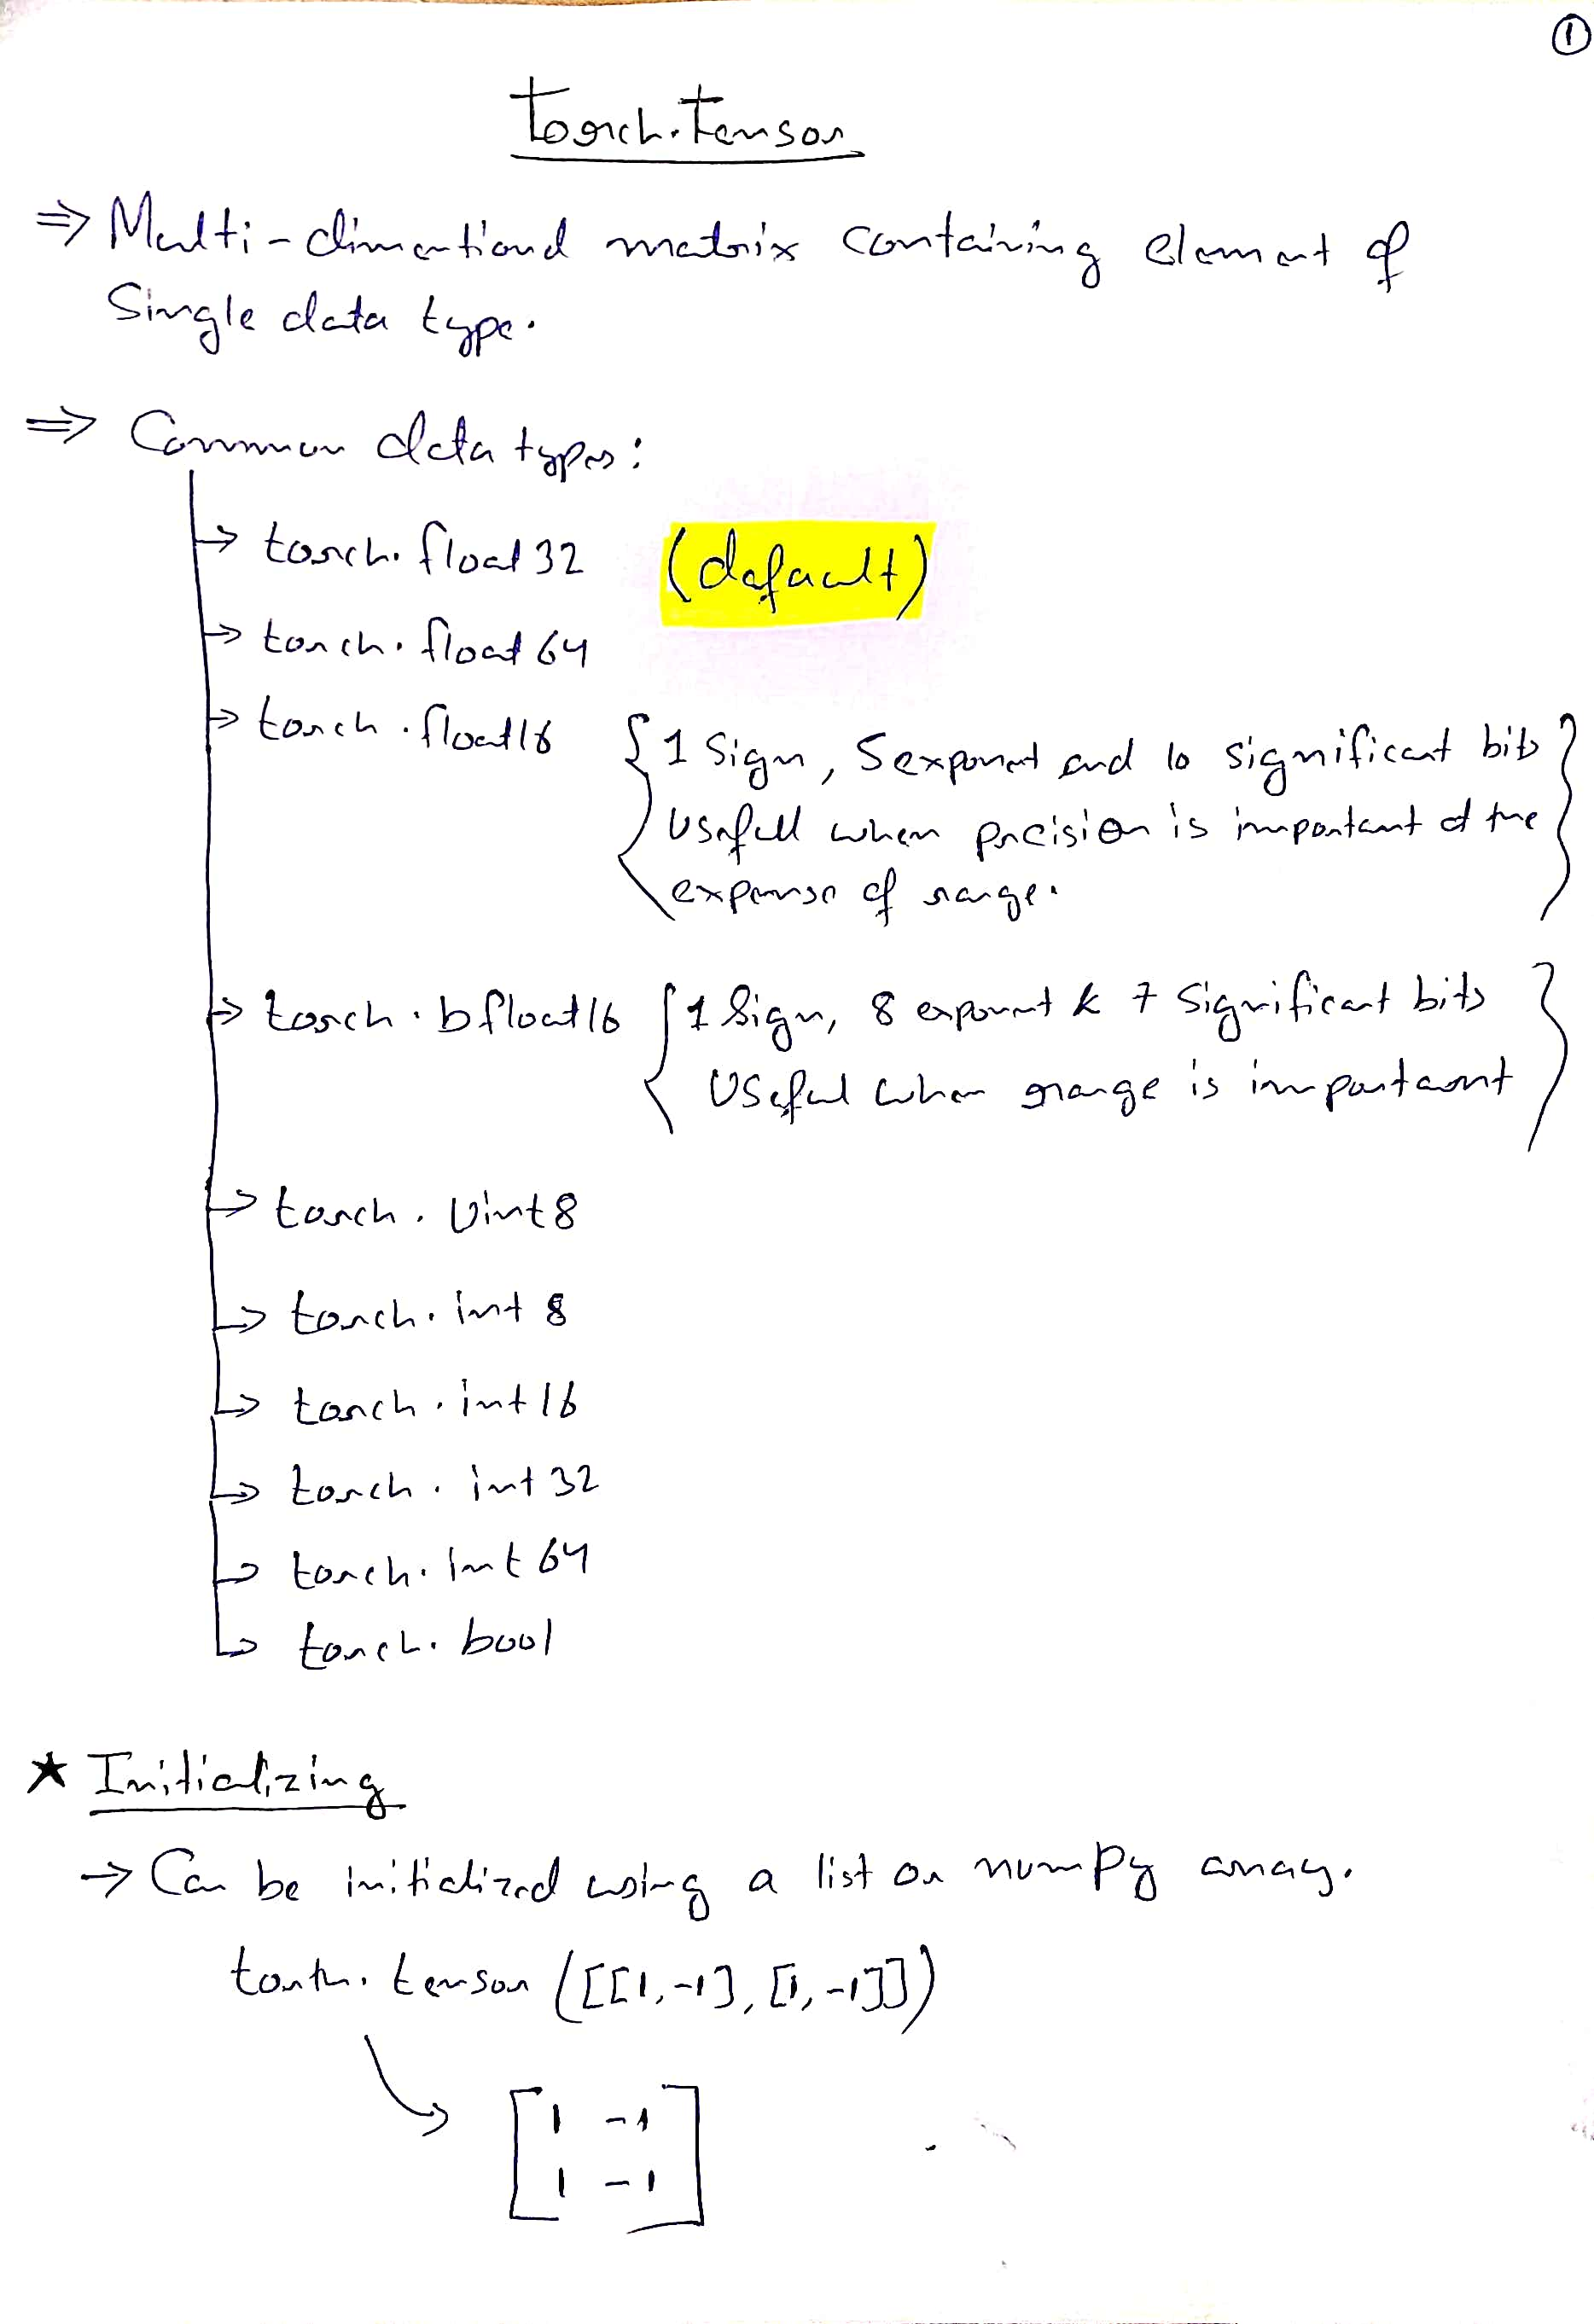 ①
torch.Tensor
⇒ Multi-dimentional matrix containing element of
Single data type.
⇒ Common data types:
→ torch.float32 (default)
→ torch.float64
→ torch.float16 {1 Sign, 5 exponent and 10 significant bits
Usefull when precision is important at the
expense of range.}
→ torch.bfloat16 {1 Sign, 8 exponent & 7 Significant bits
Useful when range is important}
→ torch.Uint8
→ torch.int8
→ torch.int16
→ torch.int32
→ torch.int64
→ torch.bool
★ Initializing
→ Can be initialized using a list or numpy array.
torch.tensor([[1,-1],[1,-1]])
[1 -1
1 -1]